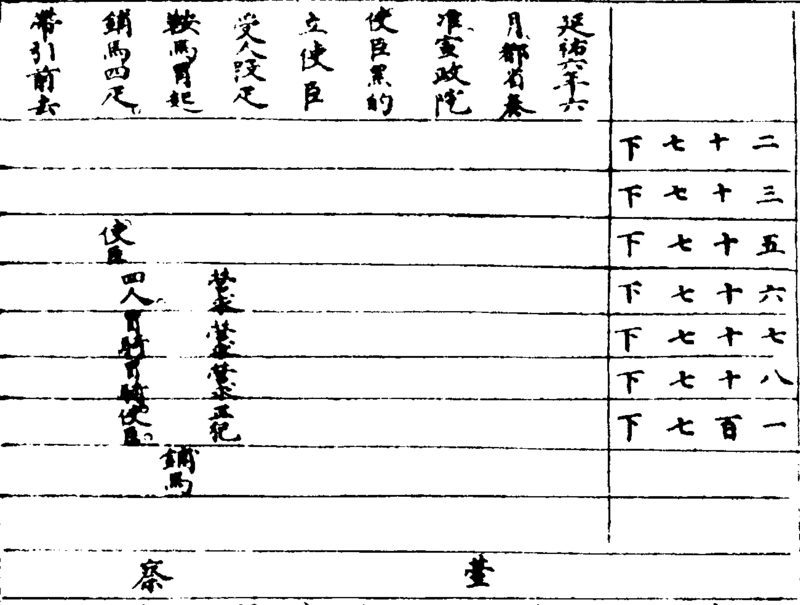 二十七下
三十七下
五十七下
六十七下
七十七下
八十七下
一百七下
延祐六年六
月都省奏
准宣政院
使臣黑的
立使臣
受人段疋
鞍馬冐起
鋪馬四疋
帶引前去
營求
營求
營求
鋪馬
使臣
四人
冐騎
冐騎
使臣
臺察